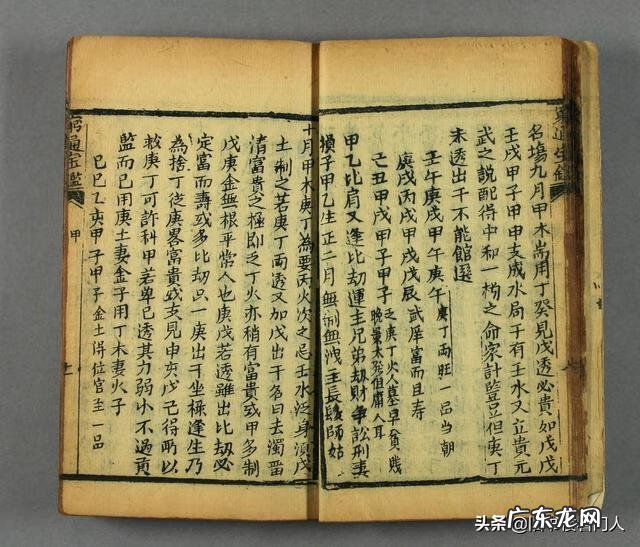 窮通宝鑑
名塲九月甲木耑用丁癸見戊透必貴如戊戌
壬戌甲子甲申支成水局干有壬水又立貴元
武之說配得中和一榜之命家計豈但庚丁
未透出干不能館選
壬午庚戌甲午庚午 庚丁両旺一品當朝
庚戌丙戌甲戌戊辰 武庠富而且寿
己丑甲戌甲子甲子 之庚丁火墓早貧賤
晚景太發但庸人耳
甲乙比肩又逢比刼運主兄弟刼財争訟刑妻
損子甲乙生正二月無制無洩主長髮師姑
十月甲木庚丁為要丙火次之忌壬水泛身須戊
土制之若庚丁両透又加戊出干名曰去濁畱
清富貴之極即乏丁火亦稍有富貴或甲多制
戊庚金無根平常人也庚戊若透雖出比刼必
定富而壽或多比刼只一庚出干坐祿逢生乃
為捨丁從庚畧富貴或支見申亥戊己得所以
救庚丁可許科甲若單己透其力弱小不過貢
監而已用庚土妻金子用丁木妻火子
己巳乙亥甲子甲子金土得位官至一品
窮通宝鑑
甲
头条
广东龙网